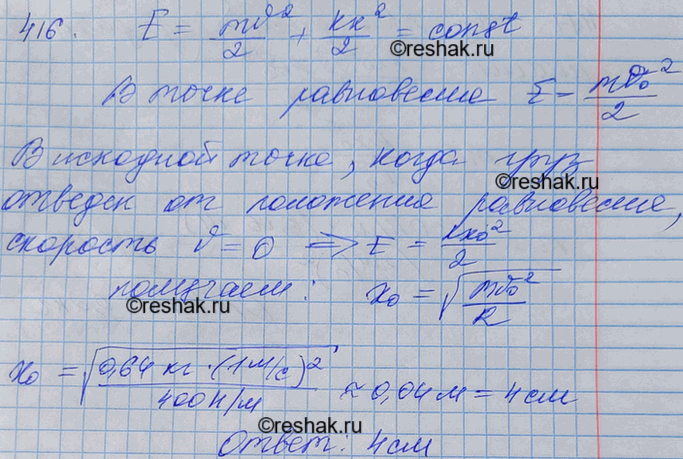 416. E = mv²/2 + kx²/2 = const
©reshak.ru
В точке равновесие E = mv₀²/2
В исходной точке, когда груз
©reshak.ru
отведен от положения равновесие,
скорость v = 0 => E = kx₀²/2
получаем: x₀ = √(mv₀²/k)
©reshak.ru
x₀ = √(0,64 кг · (1 м/с)²/400 Н/м) ≈ 0,04 м = 4 см
©reshak.ru
Ответ: 4 см